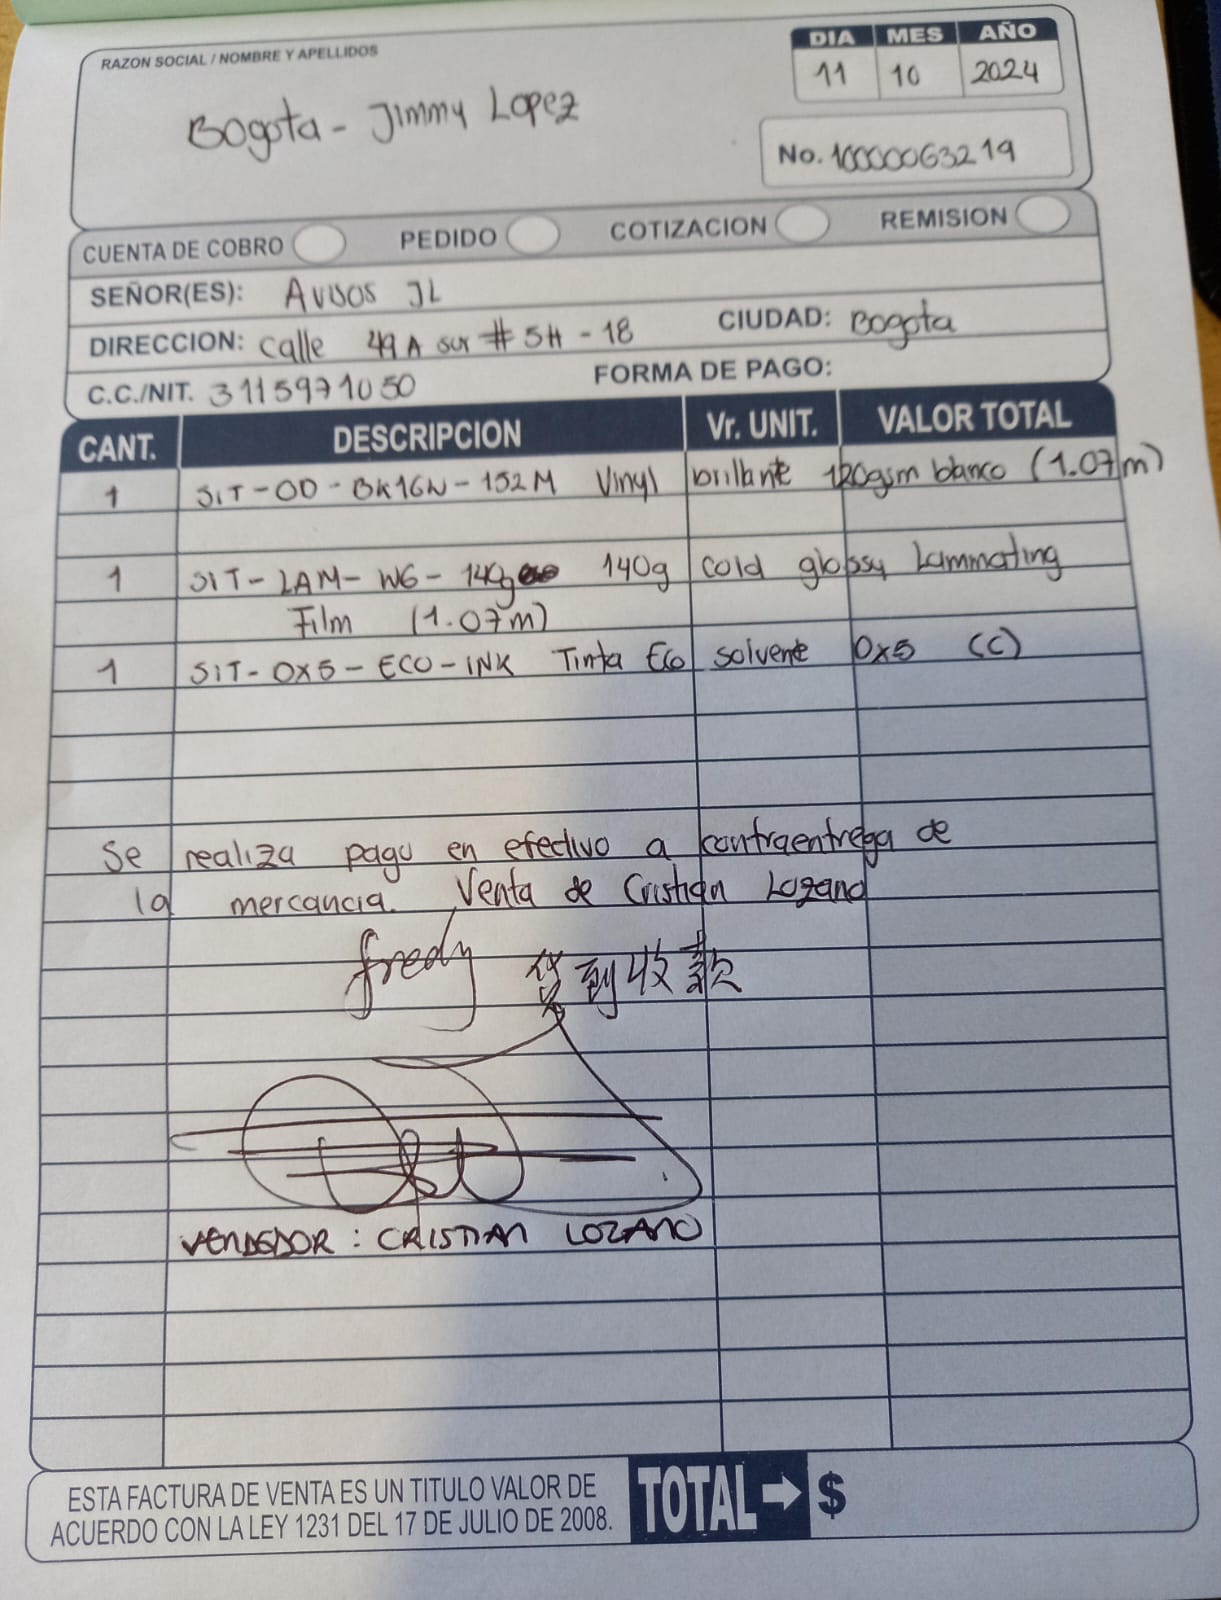 RAZON SOCIAL / NOMBRE Y APELLIDOS
Bogota - Jimmy Lopez
DIA MES AÑO
11 10 2024
No. 10000063219
CUENTA DE COBRO PEDIDO COTIZACION REMISION
SEÑOR(ES): Avisos JL
DIRECCION: calle 49 A sur # 5H - 18 CIUDAD: Bogota
C.C./NIT. 3115971050 FORMA DE PAGO:
CANT. DESCRIPCION Vr. UNIT. VALOR TOTAL
1 SIT-OD-BK16N-152M Vinyl brillante 120gsm blanco (1.07m)
1 SIT-LAM-WG-140g 140g cold glossy Lammating
Film (1.07m)
1 SIT-OX5-ECO-INK Tinta Eco solvente OX5 (C)
Se realiza pago en efectivo a contraentrega de
la mercancia. Venta de Cristian Lozano
fredy 货到收款
VENDEDOR: CRISTIAN LOZANO
ESTA FACTURA DE VENTA ES UN TITULO VALOR DE
ACUERDO CON LA LEY 1231 DEL 17 DE JULIO DE 2008.
TOTAL → $